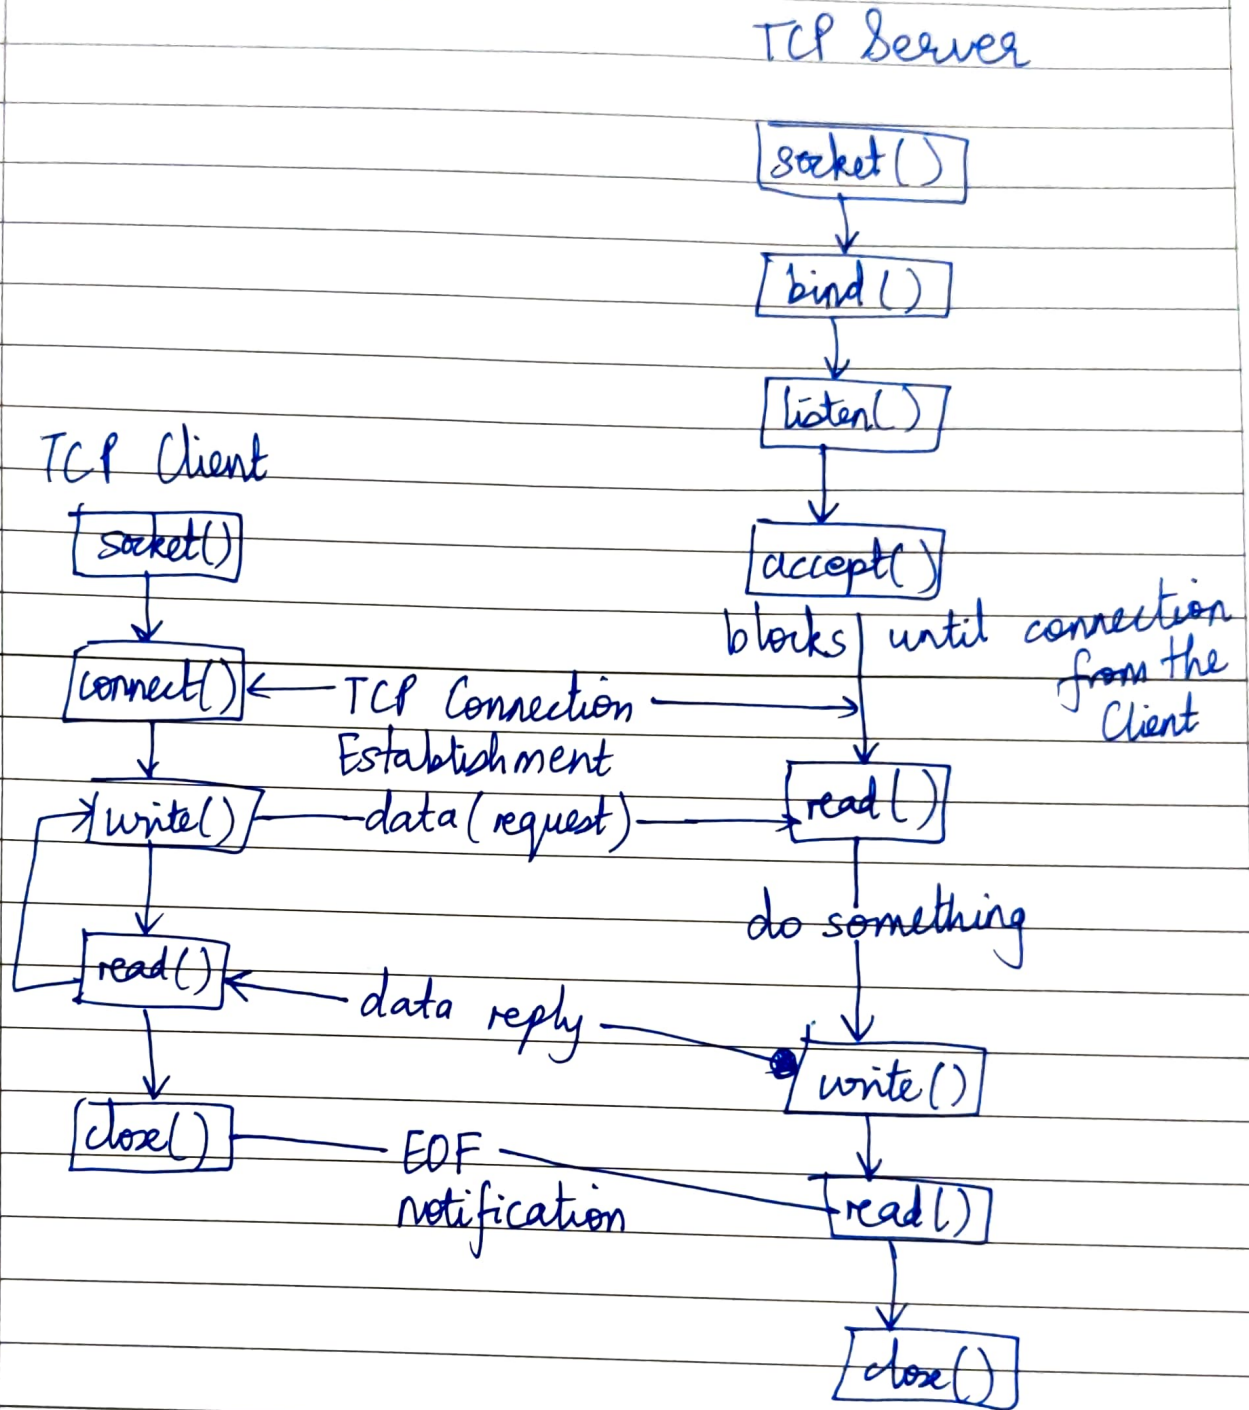 TCP Server
socket()
bind()
listen()
TCP Client
socket()
accept()
blocks until connection
from the
Client
connect()
TCP Connection
Establishment
write()
data(request)
read()
do something
read()
data reply
write()
close()
EOF
notification
read()
close()